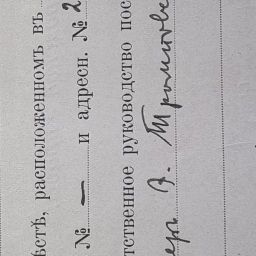 ѣстѣ, расположенномъ въ
№ — и адресн. № 2
тственное руководство пос